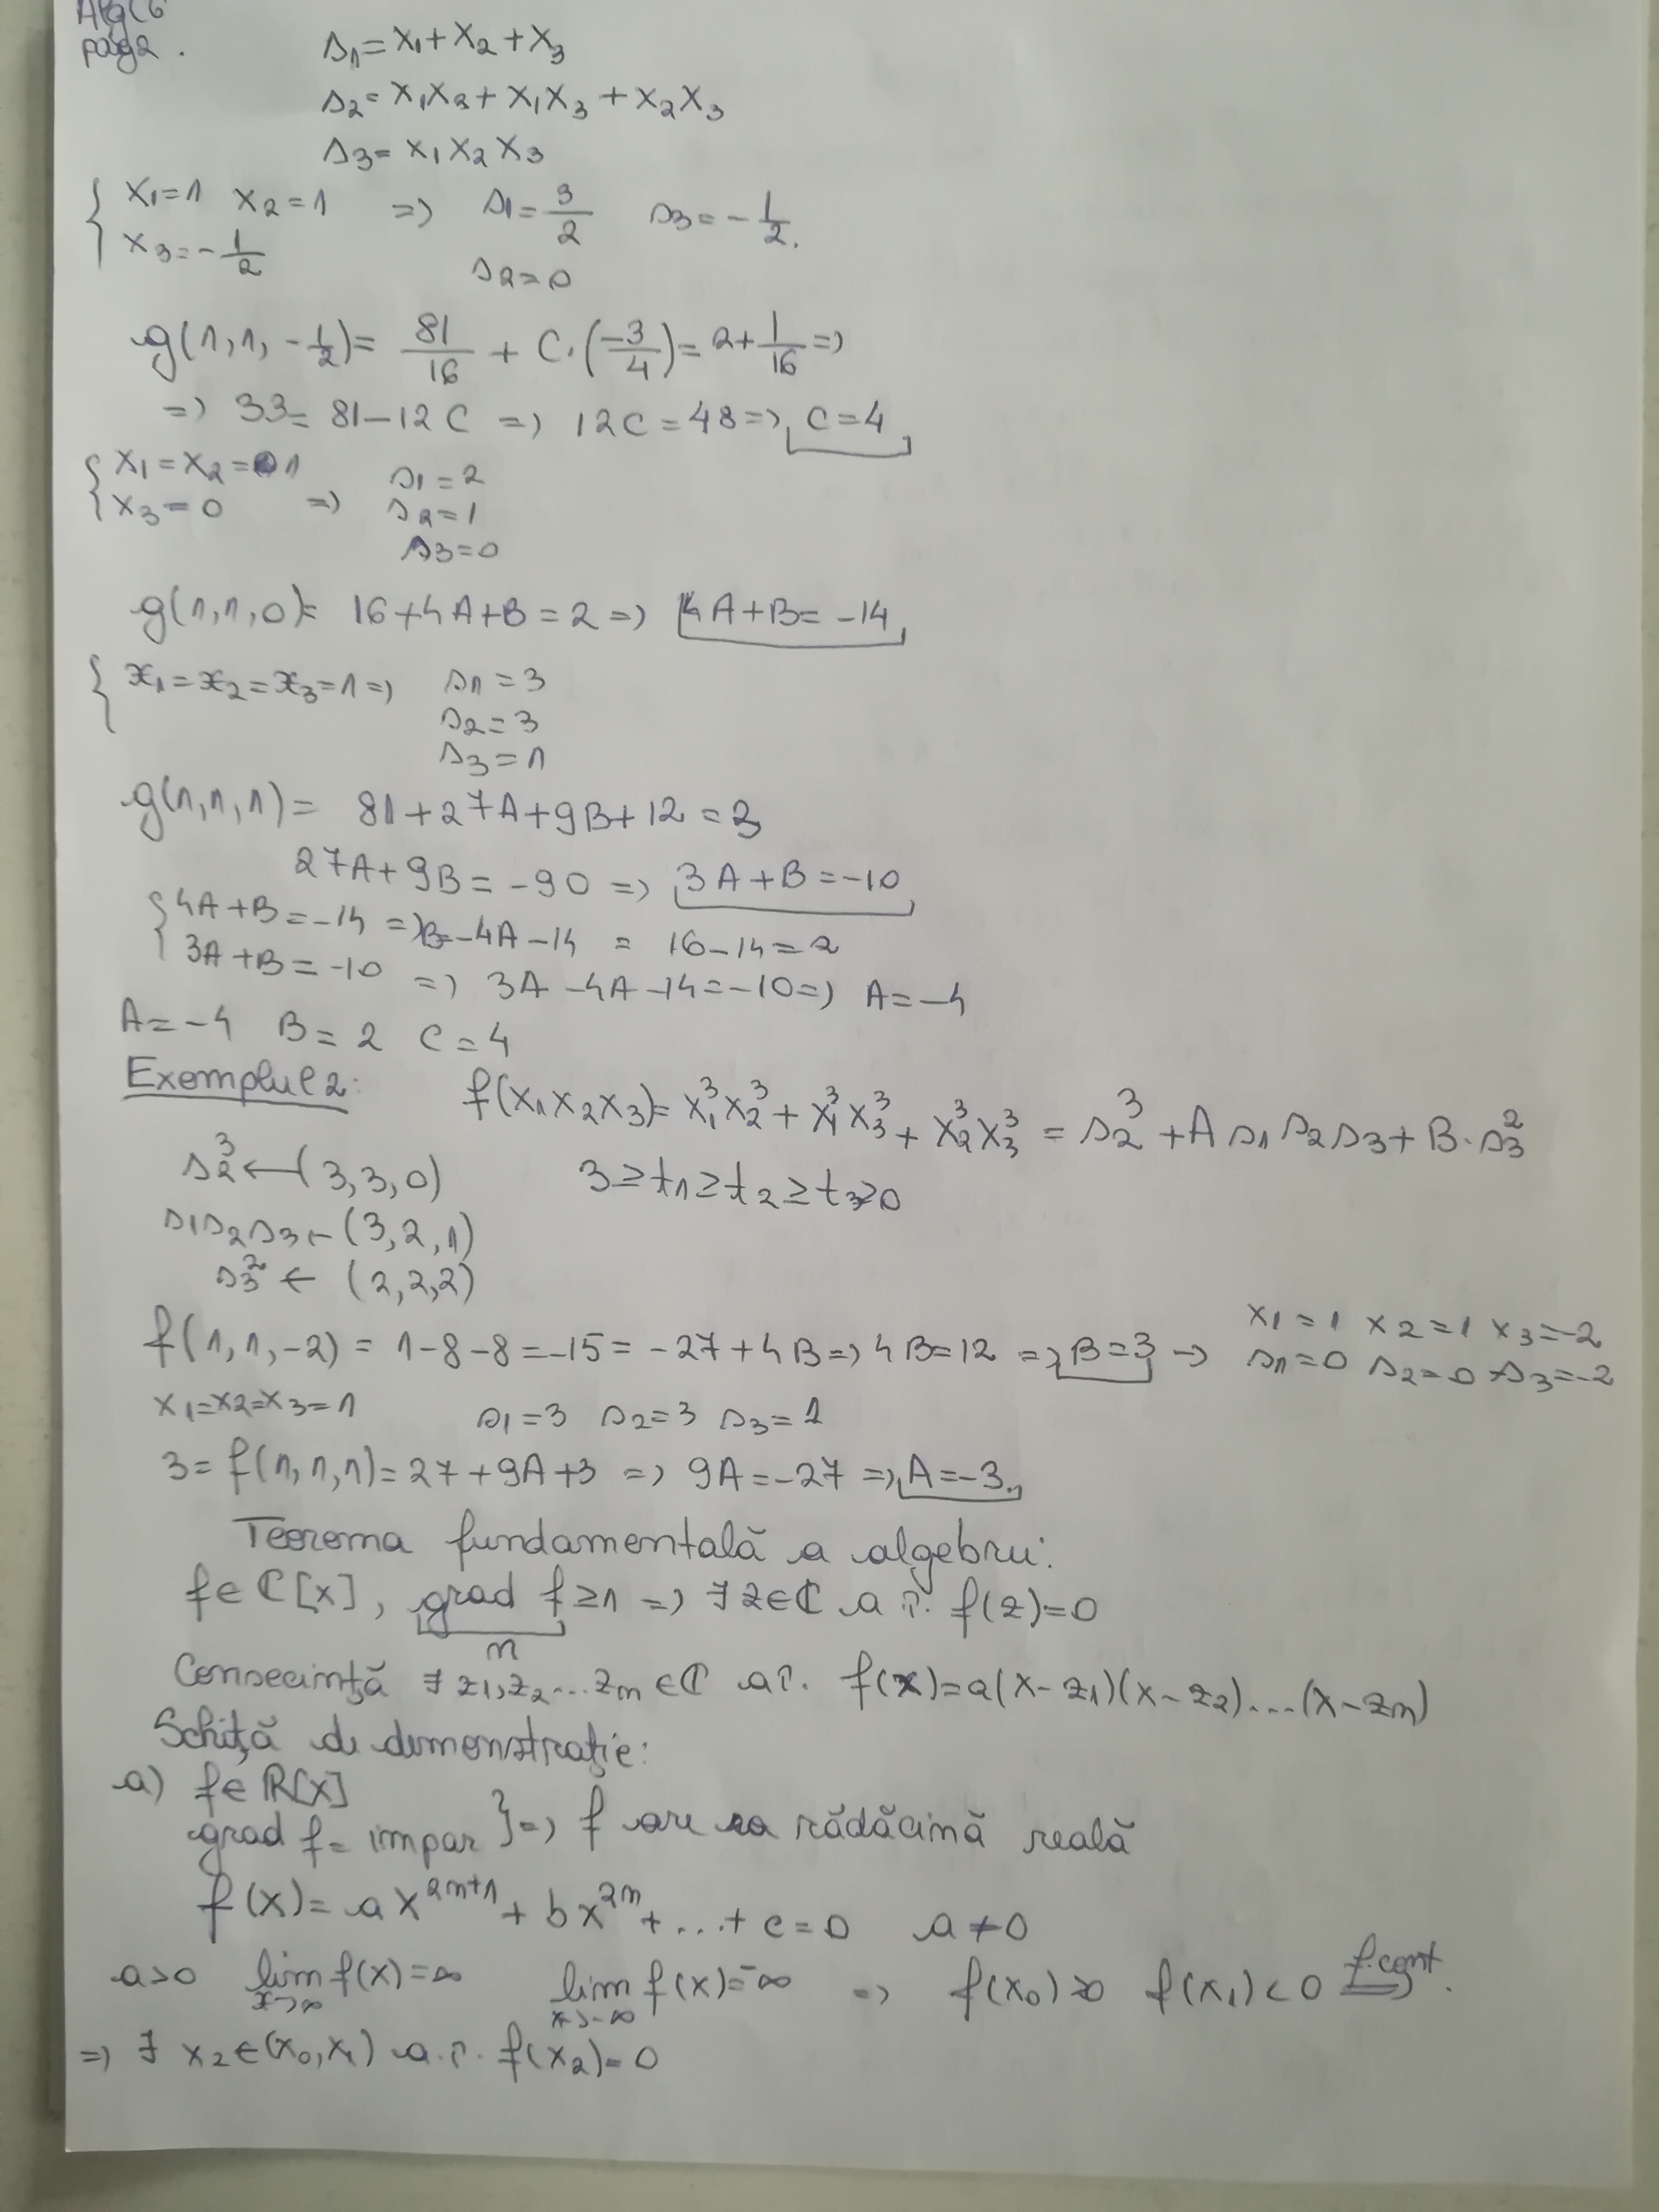 Alg C6
pag 2.
s₁ = x₁ + x₂ + x₃
s₂ = x₁x₂ + x₁x₃ + x₂x₃
s₃ = x₁x₂x₃
{ x₁=1 x₂=1 => s₁ = 3/2 s₃ = -1/2.
x₃ = -1/2 s₂=0
g(1,1,-1/2) = 81/16 + C·(-3/4) = 2 + 1/16 =>
=> 33 = 81 - 12C => 12C = 48 => C=4
{ x₁ = x₂ = 1 s₁ = 2
x₃ = 0 => s₂ = 1
s₃ = 0
g(1,1,0) = 16 + 4A + B = 2 => 4A + B = -14
{ x₁ = x₂ = x₃ = 1 => s₁ = 3
s₂ = 3
s₃ = 1
g(1,1,1) = 81 + 27A + 9B + 12 = 3
27A + 9B = -90 => 3A + B = -10
{ 4A + B = -14 => B = -4A - 14 = 16 - 14 = 2
3A + B = -10 => 3A - 4A - 14 = -10 => A = -4
A = -4 B = 2 C = 4
Exemplul 2: f(x₁x₂x₃) = x₁³x₂³ + x₁³x₃³ + x₂³x₃³ = s₂³ + A s₁s₂s₃ + B·s₃²
s₂³ ← (3,3,0) 3 ≥ t₁ ≥ t₂ ≥ t₃ ≥ 0
s₁s₂s₃ ← (3,2,1)
s₃² ← (2,2,2)
x₁ = 1 x₂ = 1 x₃ = -2
f(1,1,-2) = 1 - 8 - 8 = -15 = -27 + 4B => 4B = 12 => B = 3 → s₁ = 0 s₂ = 0 s₃ = -2
x₁ = x₂ = x₃ = 1 s₁ = 3 s₂ = 3 s₃ = 1
3 = f(1,1,1) = 27 + 9A + 3 => 9A = -27 => A = -3.
Teorema fundamentală a algebrii:
f ∈ ℂ[x], grad f ≥ 1 => ∃ z ∈ ℂ a î. f(z) = 0
n
Consecință ∃ z₁, z₂ ... zₙ ∈ ℂ a î. f(x) = a(x - z₁)(x - z₂)....(x - zₙ)
Schiță de demonstrație:
a) f ∈ ℝ[x]
grad f = impar } => f are o rădăcină reală
f(x) = a x²ⁿ⁺¹ + b x²ⁿ + ... + c = 0 a ≠ 0
a > 0 lim x→∞ f(x) = ∞ lim x→-∞ f(x) = -∞ => f(x₀) > 0 f(x₁) < 0 f. cont. =>
=> ∃ x₂ ∈ (x₀, x₁) a.î. f(x₂) = 0